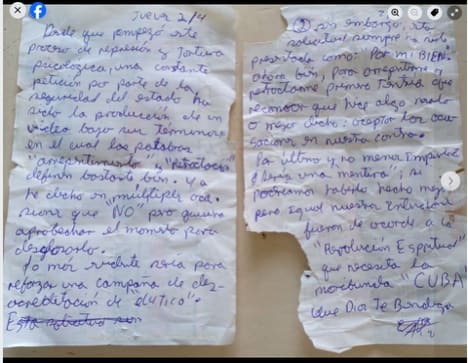 Jueves 2/4
Desde que empezó este
proceso de represión y tortura
psicológica, una constante
petición por parte de la
seguridad del estado ha
sido la producción de un
video bajo sus términos
en el cual las palabras
"arrepentimiento" y "retractación"
definen bastante bien. Ya
he dicho en múltiples oca
siones que "NO" pero quiero
aprobechar el momento para
desglosarlo.
Lo más evidente sería para
reforzar una campaña de des-
acreditación de
②, sin embargo, esta
solicitud siempre ha sido
presentada como: "Por mi BIEN"
ahora bien, para arrepentirme y
retractarme primero tendría que
reconocer que hice algo malo
o mejor dicho: aceptar las acu
saciones en nuestra contra.
Por último y no menos importante
sería una mentira; si
podríamos haberlo hecho mejor
pero igual nuestras
fueron de acorde a la
"Revolución Espiritual"
que necesita la
moribunda "CUBA"
Que Dios Te Bendiga